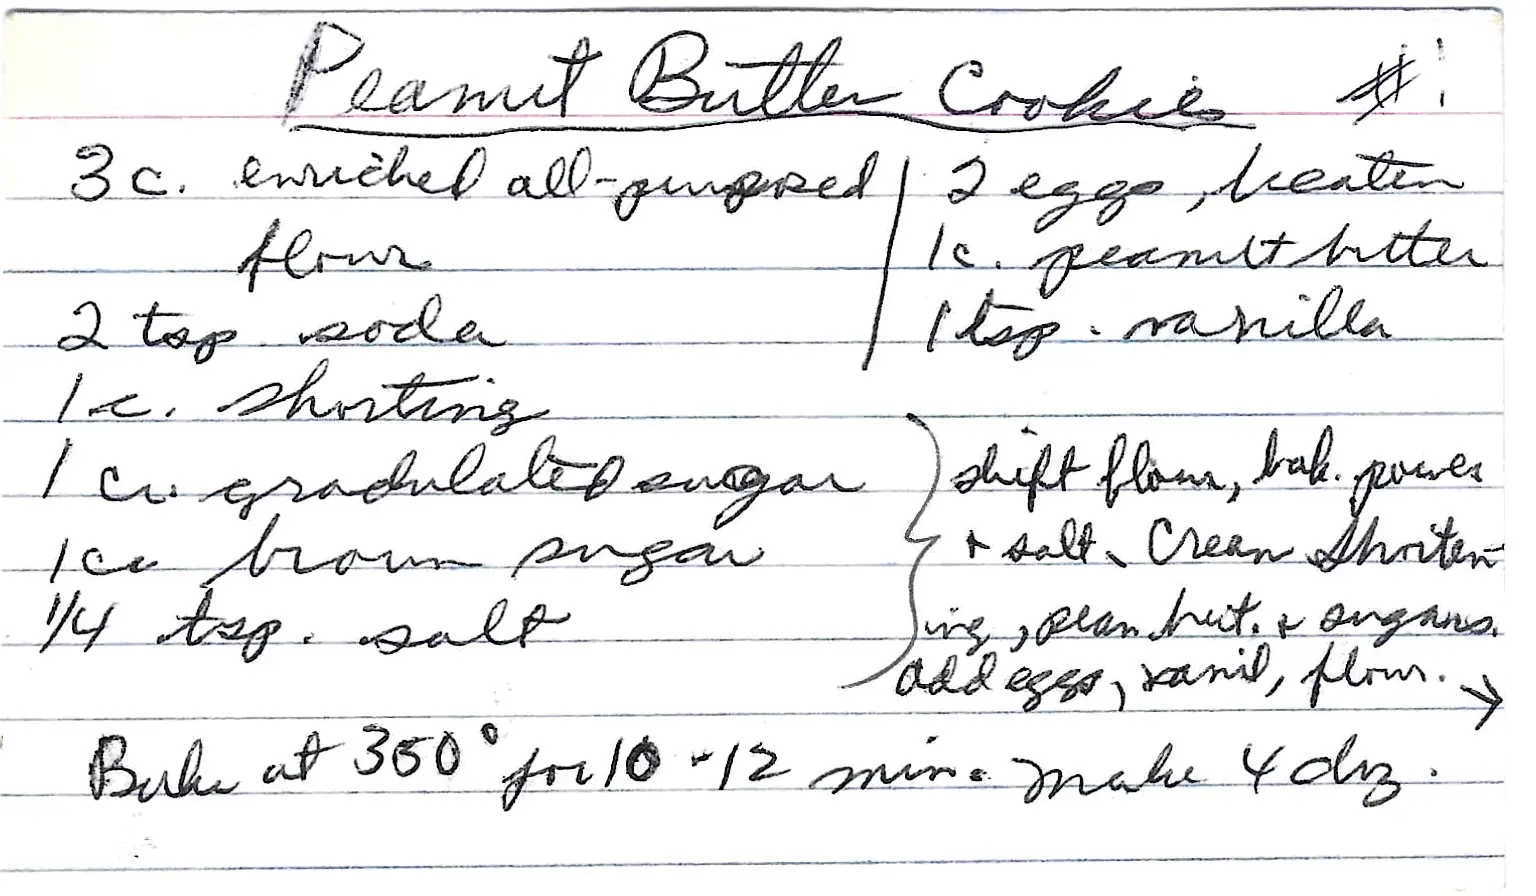 Peanut Butter Cookies #1
3 c. enriched all-purposed
flour
2 tsp. soda
1 c. shorting
1 c. gradulated sugar
1 c. brown sugar
1/4 tsp. salt
2 eggs, beaten
1 c. peanut butter
1 tsp. vanilla
shift flour, bak. power
+ salt. Cream Shorten-
ing, pean but. + sugars.
add eggs, vanil, flour. →
Bake at 350° for 10-12 min. make 4 doz.